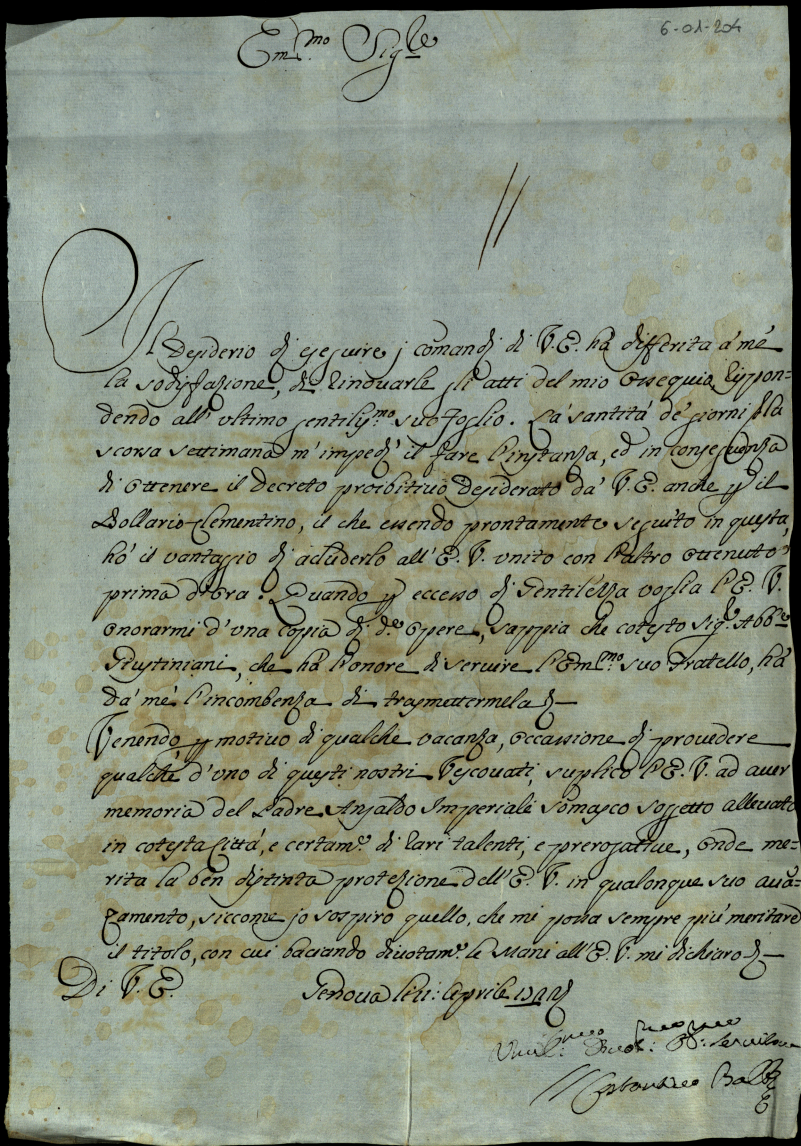 6-01-204
Em.mo Sig.re
Il Desiderio di eseguire i comandi di V.E. hà differita à mè
la sodisfazione, di rinovarle gli atti del mio ossequio rispon-
dendo all' ultimo gentilis.mo suo foglio. La santità de' giorni della
scorsa settimana m' impedì il fare l'instanza, ed in conseguenza
di ottenere il Decreto proibitivo desiderato dà V.E. anche p il
Bollario Clementino, il che essendo prontamente seguito in questa,
hò il vantaggio di acluderlo all' E.V. unito con l'altro ottenuto
prima d'ora. Quando p eccesso di Gentilezza voglia l'E.V.
onorarmi d'una copia di d.e opere, sappia che cotesto Sig.r Abb.e
Giustiniani, che hà l'onore di servire l'Em.mo suo Fratello, hà
dà mè l'incombenza di trasmettermela
Venendo p motivo di qualche vacanza, occassione di provedere
qualche d'uno di questi nostri Vescovati, suplico l'E.V. ad aver
memoria del Padre Ansaldo Imperiale Somasco soggetto allevato
in cotesta Città, e certam.e di rari talenti, e prerogative, onde me-
rita la ben distinta protezione dell' E.V. in qualonque suo avan-
zamento, siccome io sospiro quello, che mi possa sempre più meritare
il titolo, con cui baciando divotam.e le Mani all' E.V. mi dichiaro
Di V.E. Genova li Aprile
Costantino Balbi